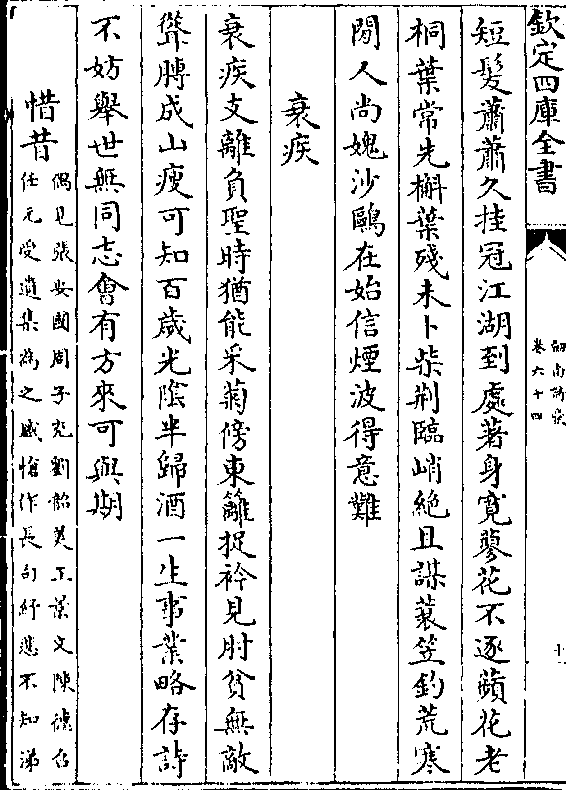 欽定四庫全書
劍南詩稾
卷六十四
短髪蕭蕭久挂冠江湖到處著身寛蓼花不逐蘋花老
桐葉常先槲葉殘未卜柴荆臨峭絶且謀蓑笠釣荒寒
閱人尚媿沙鷗在始信煙波得意難
衰疾
衰疾支離負聖時猶能采菊傍東籬捉衿見肘貧無敵
聳膊成山瘦可知百歳光陰半歸酒一生事業略存詩
不妨舉世無同志會有方來可與期
惜昔
偶見張安國周子充劉韶美王景文陳德召
任元受遺集為之感愴作長句紓悲不知涕